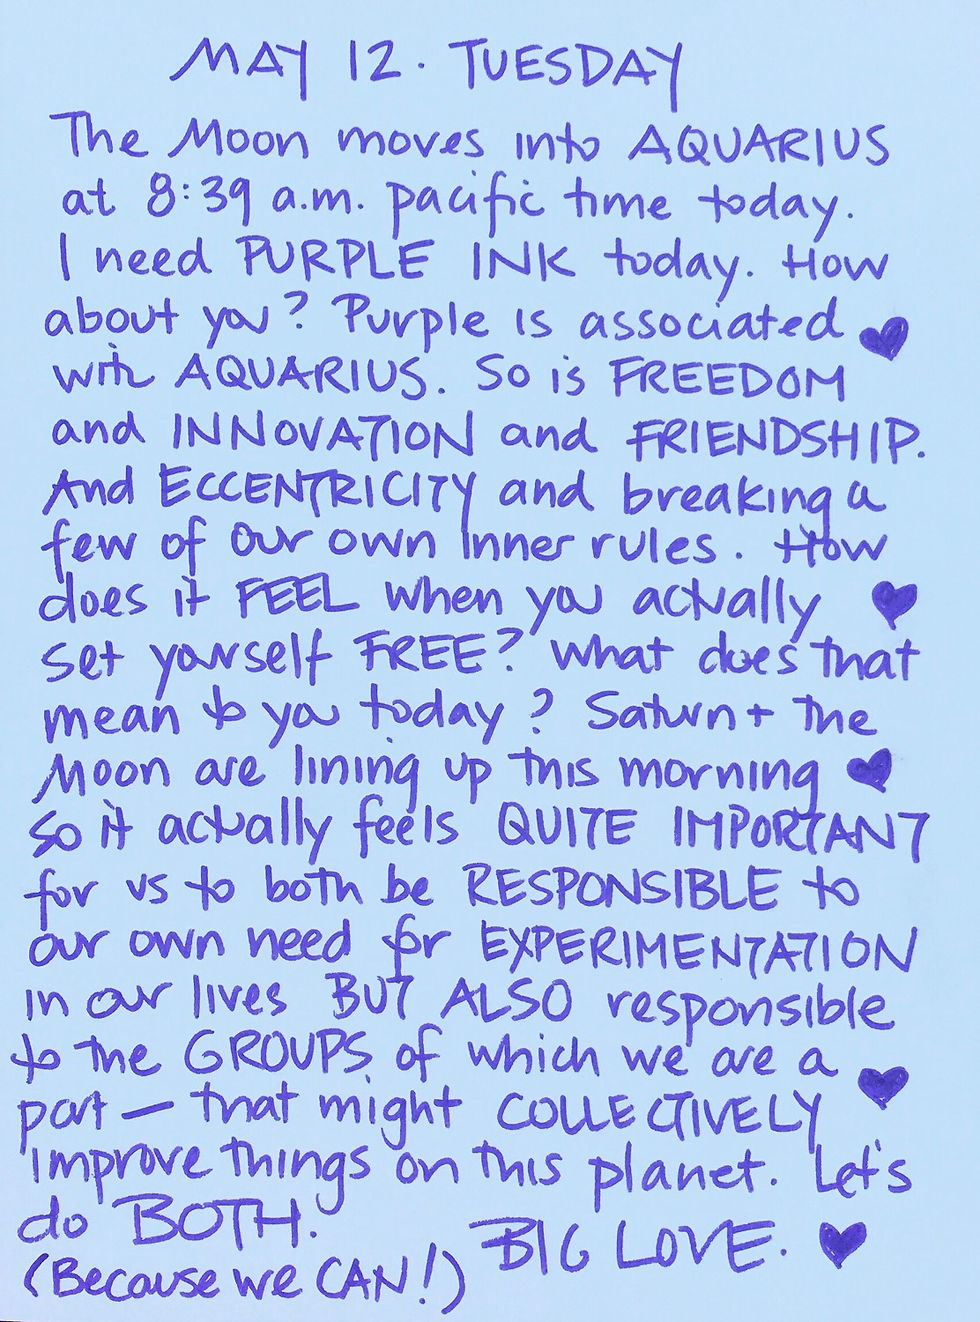 MAY 12. TUESDAY
The Moon moves into AQUARIUS
at 8:39 a.m. pacific time today.
I need PURPLE INK today. How
about you? Purple is associated
with AQUARIUS. So is FREEDOM
and INNOVATION and FRIENDSHIP.
And ECCENTRICITY and breaking a
few of our own inner rules. How
does it FEEL when you actually
set yourself FREE? What does that
mean to you today? Saturn + the
Moon are lining up this morning
so it actually feels QUITE IMPORTANT
for us to both be RESPONSIBLE to
our own need for EXPERIMENTATION
in our lives BUT ALSO responsible
to the GROUPS of which we are a
part — that might COLLECTIVELY
improve things on this planet. Let's
do BOTH.
(Because we CAN!) BIG LOVE.